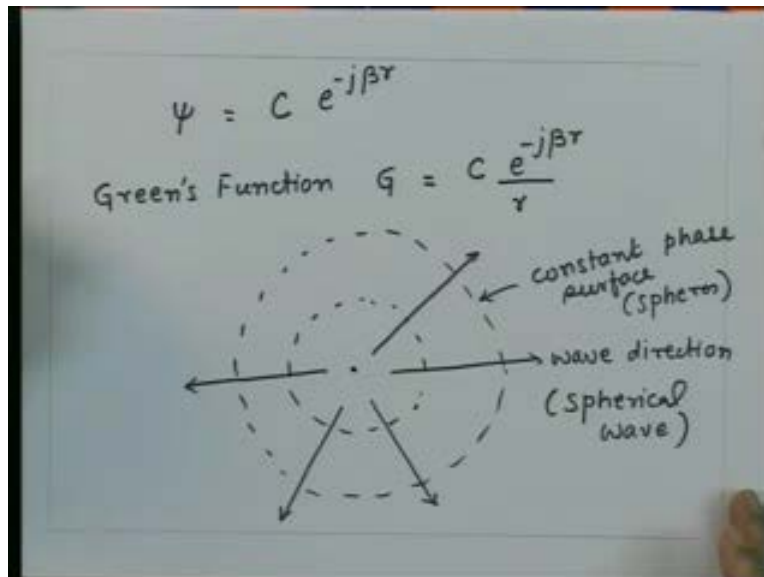 ψ = C e^{-jβr}
Green's Function G = C e^{-jβr}/r
constant phase
surface
(spheres)
wave direction
(spherical
wave)